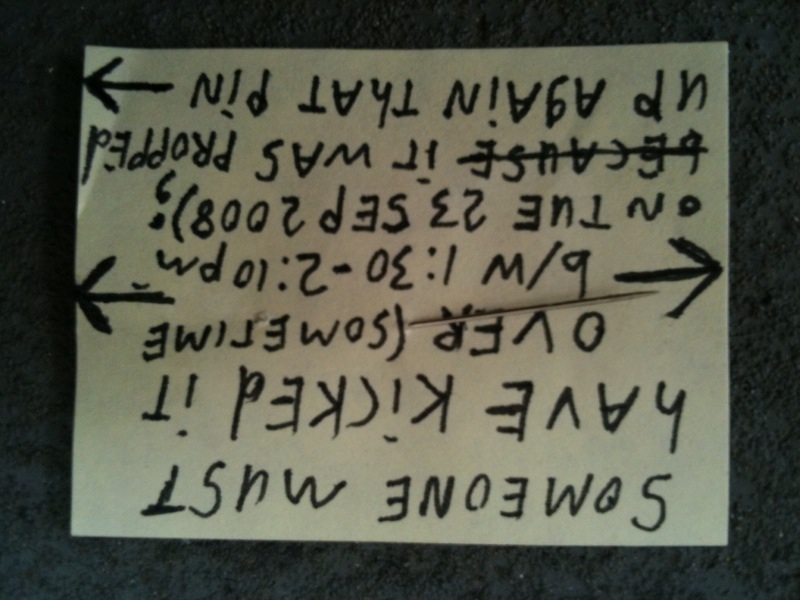 SOMEONE MUST
HAVE KICKED iT
OVER (SOMETIME
b/W 1:30-2:10pm
ON TUE 23 SEP 2008);
BECAUSE iT WAS PROPPEd
UP AGAiN THAT PiN